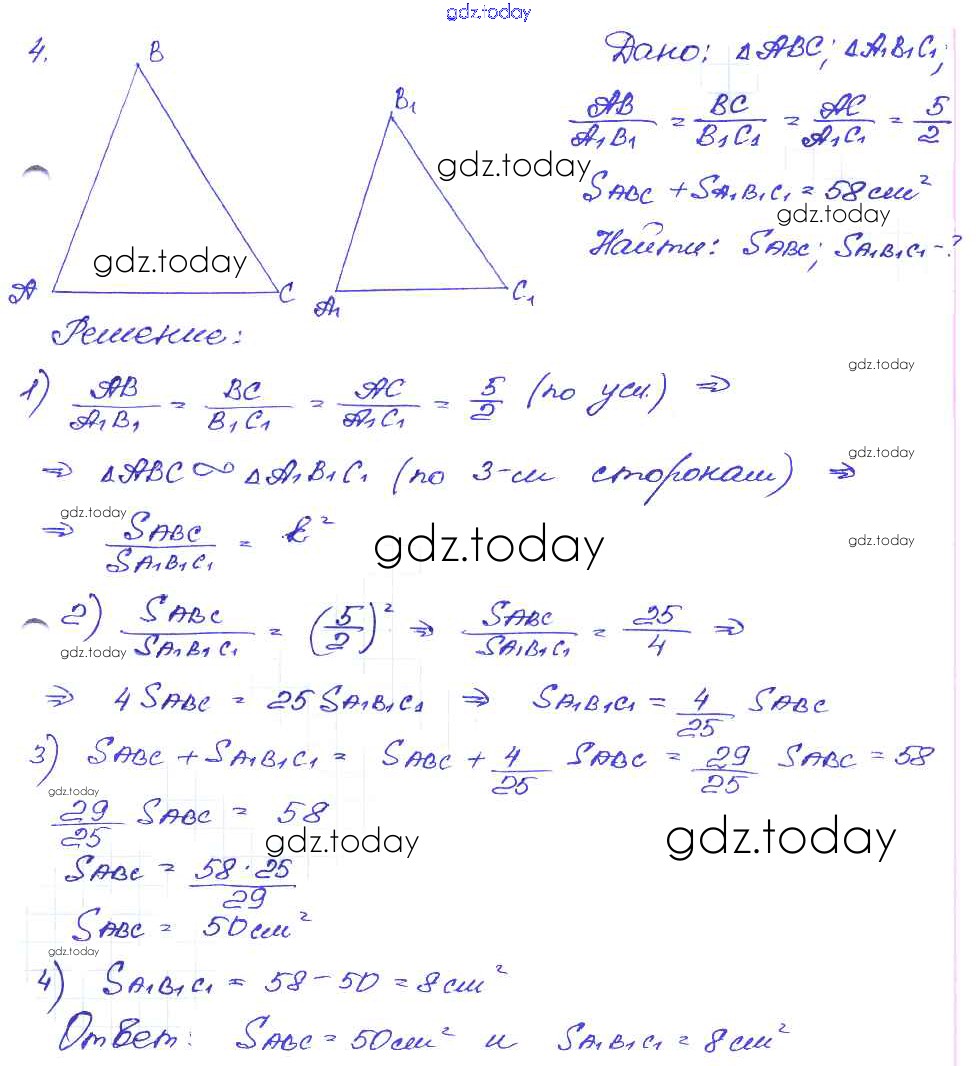 gdz.today
4.
B
A
C
B₁
A₁
C₁
Дано: ΔABC; ΔA₁B₁C₁;
AB/A₁B₁ = BC/B₁C₁ = AC/A₁C₁ = 5/2
gdz.today
SABC + SA₁B₁C₁ = 58 см²
gdz.today
Найти: SABC; SA₁B₁C₁ - ?
gdz.today
Решение:
1) AB/A₁B₁ = BC/B₁C₁ = AC/A₁C₁ = 5/2 (по усл.) ⇒
gdz.today
⇒ ΔABC ∞ ΔA₁B₁C₁ (по 3-м сторонам) ⇒
gdz.today
gdz.today
⇒ SABC/SA₁B₁C₁ = k²
gdz.today
gdz.today
2) SABC/SA₁B₁C₁ = (5/2)² ⇒ SABC/SA₁B₁C₁ = 25/4 ⇒
gdz.today
⇒ 4 SABC = 25 SA₁B₁C₁ ⇒ SA₁B₁C₁ = 4/25 SABC
3) SABC + SA₁B₁C₁ = SABC + 4/25 SABC = 29/25 SABC = 58
gdz.today
29/25 SABC = 58
gdz.today
gdz.today
SABC = 58·25/29
SABC = 50 см²
gdz.today
4) SA₁B₁C₁ = 58 - 50 = 8 см²
Ответ: SABC = 50 см² и SA₁B₁C₁ = 8 см²